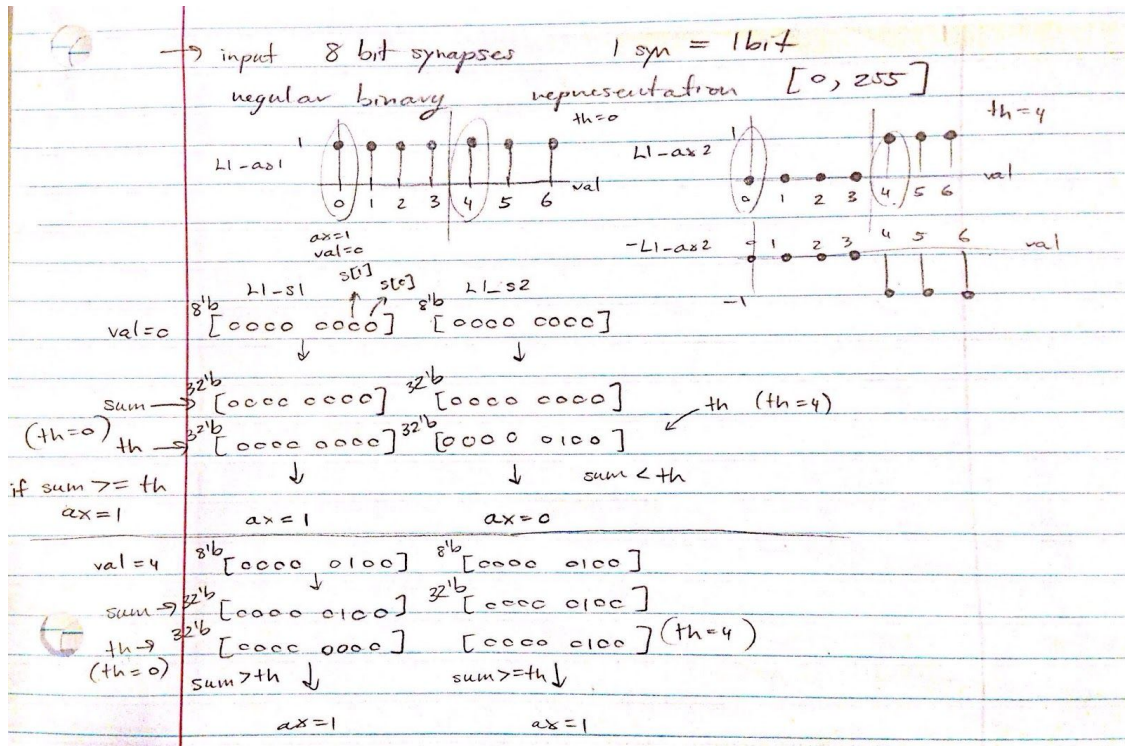 → input 8 bit synapses 1 syn = 1bit
regular binary representation [0, 255]
th=0
th=4
1
L1-ax1
val
0 1 2 3 4 5 6
1
L1-ax2
val
0 1 2 3 4 5 6
ax=1
val=0
-L1-ax2
0 1 2 3 4 5 6 val
-1
L1-s1 s[1] s[0] L1_s2
val=0 8'b [0000 0000] 8'b [0000 0000]
sum → 32'b [0000 0000] 32'b [0000 0000]
th (th=4)
(th=0) th → 32'b [0000 0000] 32'b [0000 0100]
if sum >= th sum < th
ax=1 ax=1 ax=0
val=4 8'b [0000 0100] 8'b [0000 0100]
sum → 32'b [0000 0100] 32'b [0000 0100]
th → 32'b [0000 0000] [0000 0100] (th=4)
(th=0) sum>th sum>=th
ax=1 ax=1